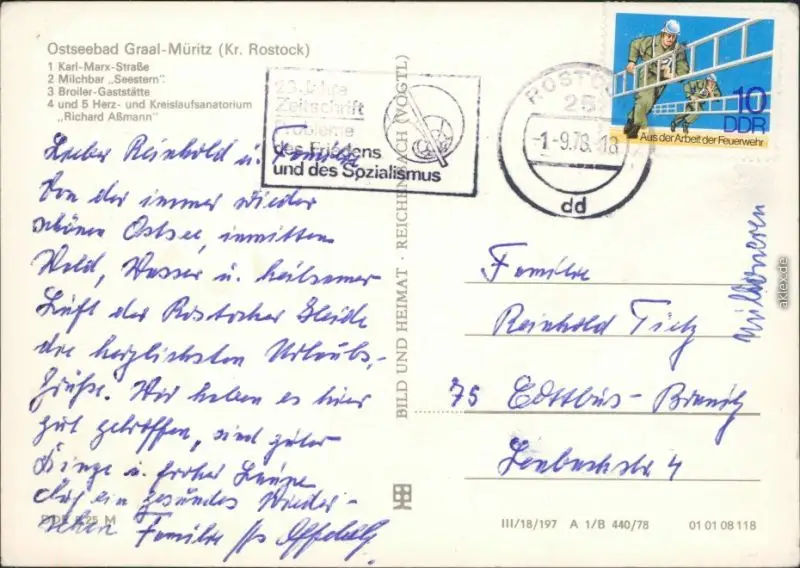 Ostseebad Graal-Müritz (Kr. Rostock)
1 Karl-Marx-Straße
2 Milchbar „Seestern"
3 Broiler-Gaststätte
4 und 5 Herz- und Kreislaufsanatorium
„Richard Aßmann"
Lieber Reinhold u. Familie
Von der immer wieder
schönen Ostsee, inmitten
Wald, Wasser u. heilsamer
Luft der Rostocker Heide
die herzlichsten Urlaubs-
grüße. Wir haben es hier
gut getroffen, sind guter
Dinge u. froher Laune
Auf ein gesundes Wieder-
sehen Familie
DDR 0,25 M
Zeitschrift
Probleme
des Friedens
und des Sozialismus
BILD UND HEIMAT · REICHENBACH (VOGTL)
ROSTOCK
25
-1.-9.78.-18
dd
10
DDR
Aus der Arbeit der Feuerwehr
Familie
Reinhold Tietz
75 Cottbus-Branitz
Lenbachstr 4
aklex.de
III/18/197 A 1/B 440/78 01 01 08 118